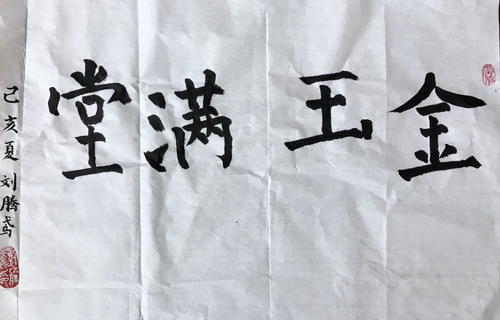 金玉满堂
己亥夏刘腾鸢